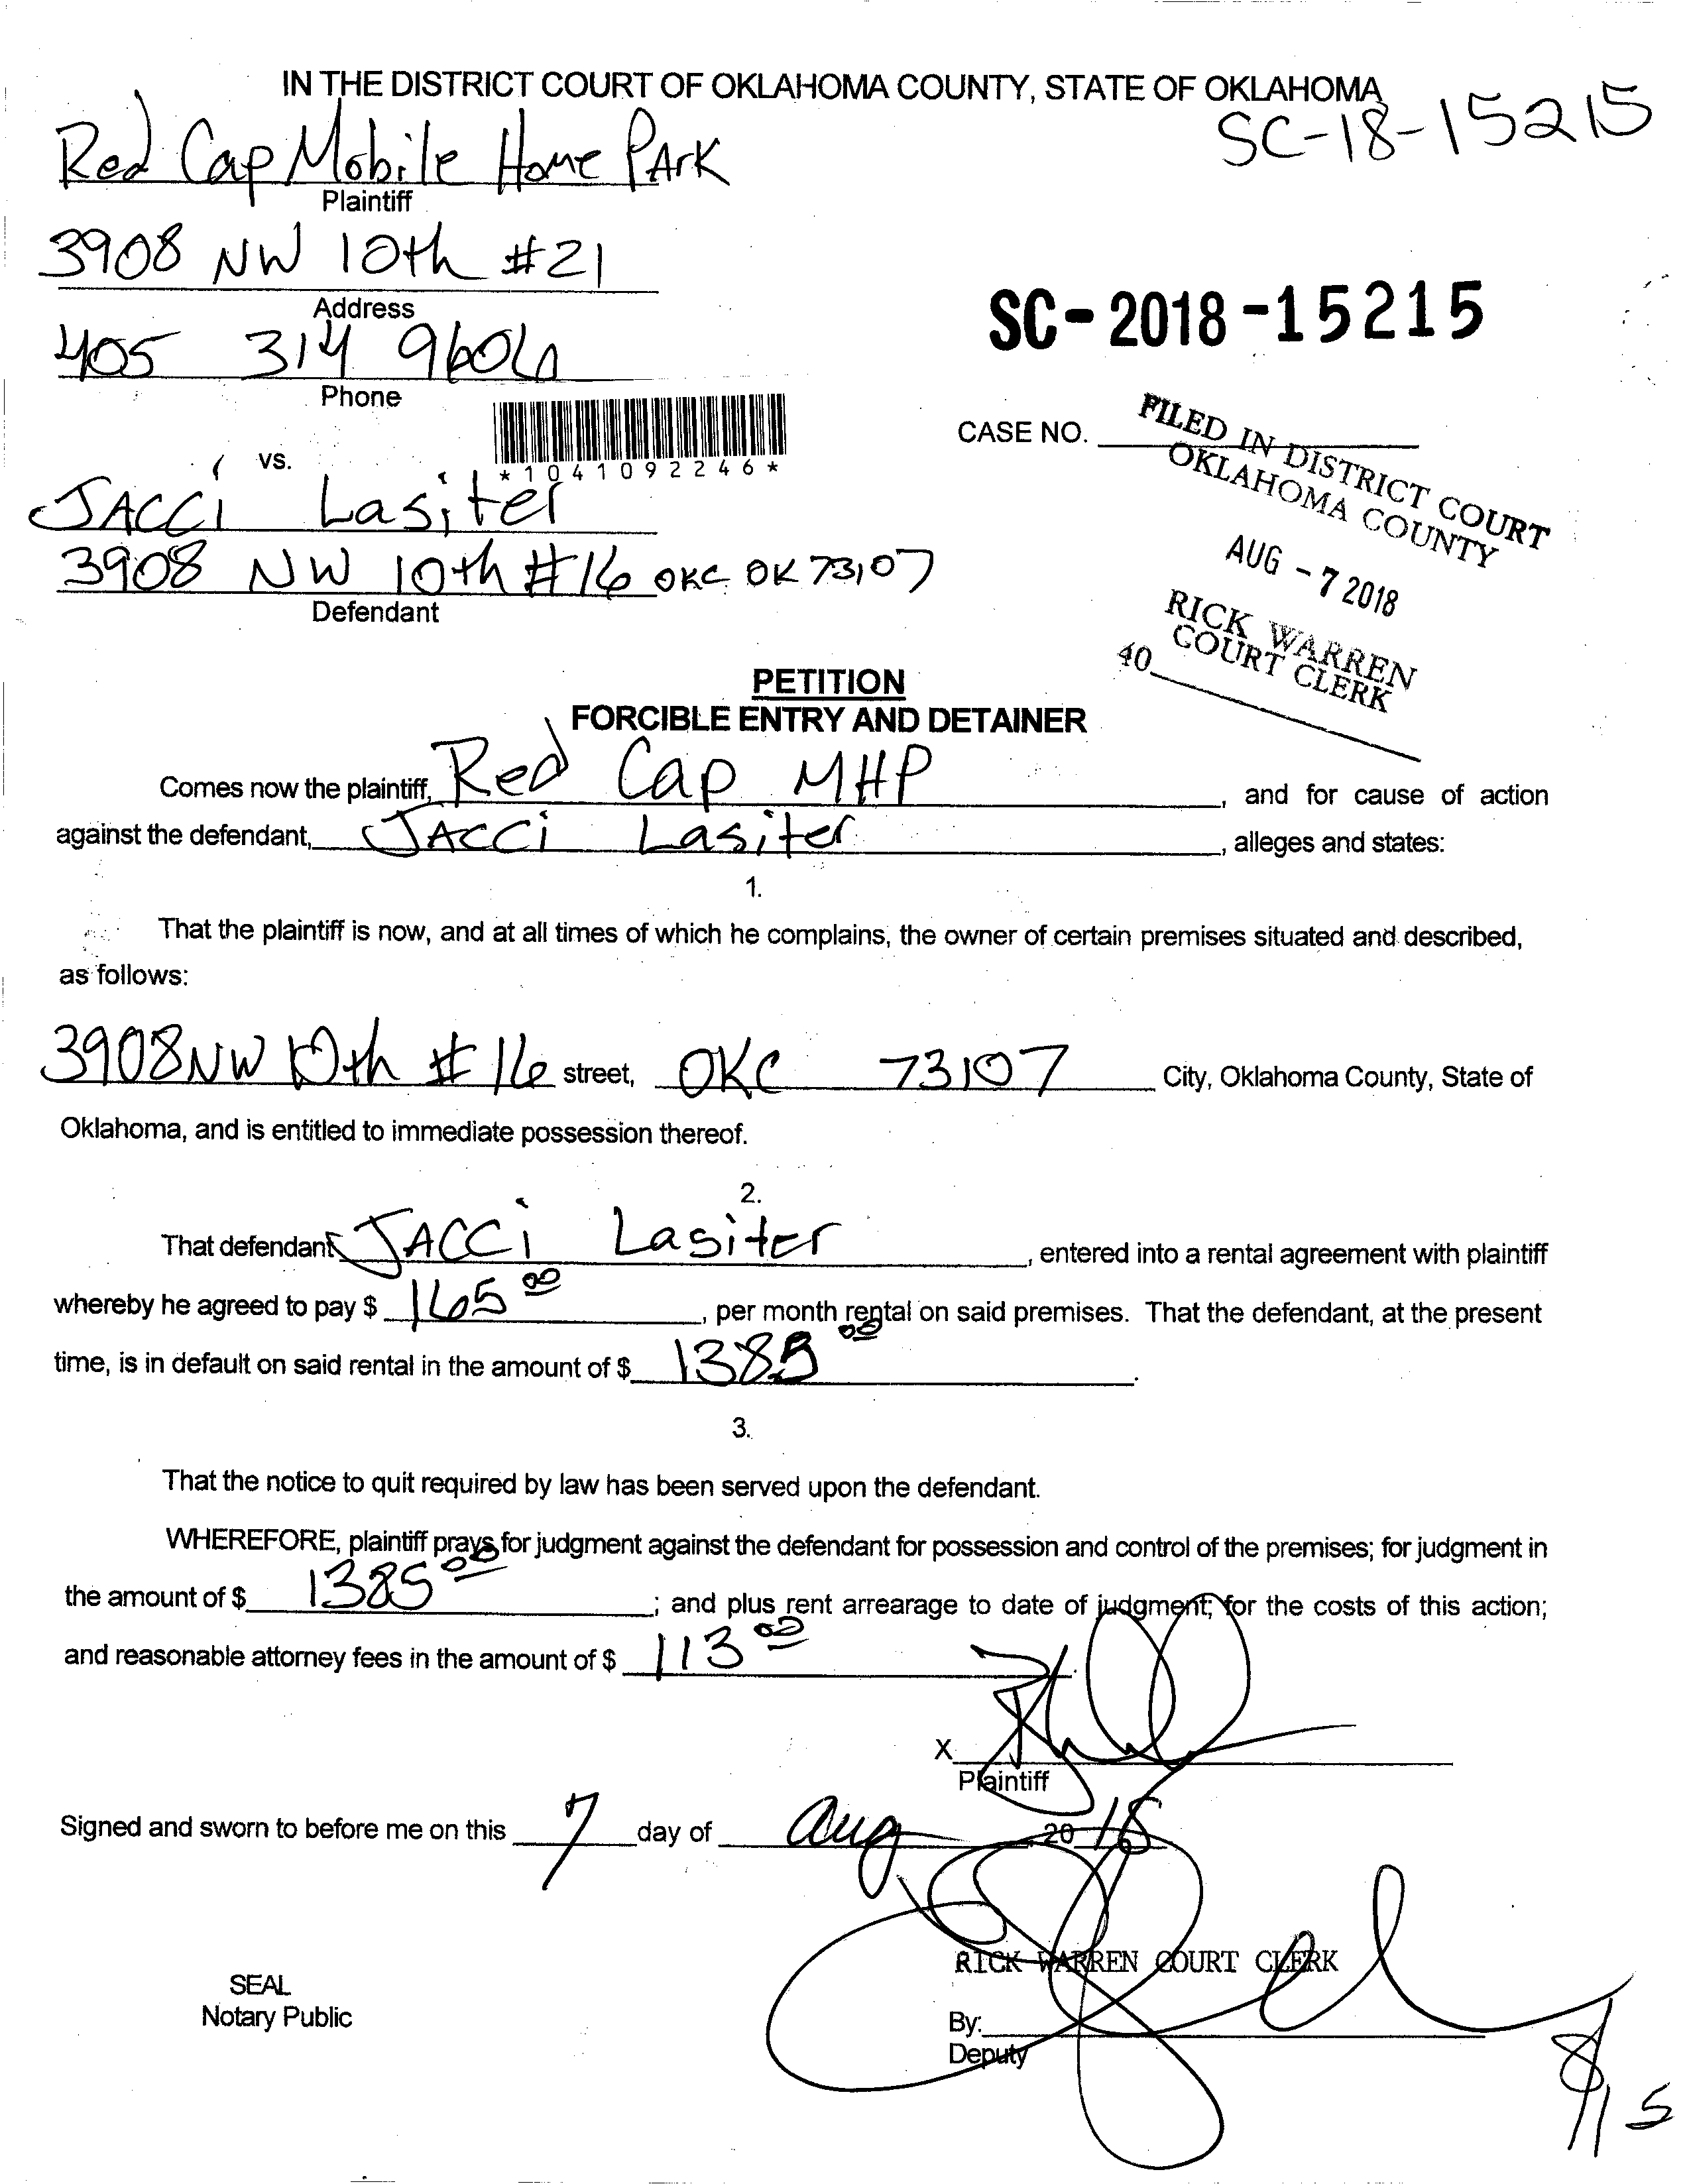 IN THE DISTRICT COURT OF OKLAHOMA COUNTY, STATE OF OKLAHOMA
SC-18-15215
Red Cap Mobile Home PArk
Plaintiff
3908 NW 10th #21
Address
SC-2018-15215
405 314 9606
Phone
CASE NO.
FILED IN DISTRICT COURT
OKLAHOMA COUNTY
AUG -7 2018
RICK WARREN
COURT CLERK
40
*1041092246*
vs.
JACCi Lasiter
3908 NW 10th #16 OKC OK 73107
Defendant
PETITION
FORCIBLE ENTRY AND DETAINER
Comes now the plaintiff, Red Cap MHP, and for cause of action
against the defendant, JACCi Lasiter, alleges and states:
1.
That the plaintiff is now, and at all times of which he complains, the owner of certain premises situated and described,
as follows:
3908 NW 10th #16 street, OKC 73107 City, Oklahoma County, State of
Oklahoma, and is entitled to immediate possession thereof.
2.
That defendant JACCi Lasiter, entered into a rental agreement with plaintiff
whereby he agreed to pay $ 165 00, per month rental on said premises. That the defendant, at the present
time, is in default on said rental in the amount of $ 1385 00.
3.
That the notice to quit required by law has been served upon the defendant.
WHEREFORE, plaintiff prays for judgment against the defendant for possession and control of the premises; for judgment in
the amount of $ 1385 00; and plus rent arrearage to date of judgment; for the costs of this action;
and reasonable attorney fees in the amount of $ 113 00.
X
Plaintiff
Signed and sworn to before me on this 7 day of Aug, 2018
RICK WARREN COURT CLERK
SEAL
Notary Public
By:
Deputy
8/15